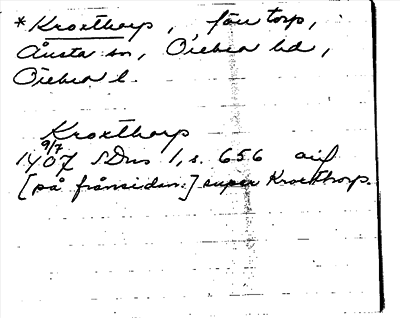 * Kroxthorp, förr torp,
Ånsta sn, Örebro hd,
Örebro l.
Kroxthorp
9/7
1407 SDns 1, s. 656 avs
[på frånsidan:] super Kroxthorp.